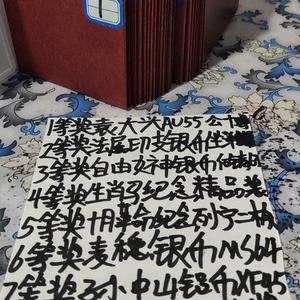 1
1等奖袁大头AU55公博
2等奖法属印支银币坐洋
3等奖自由女神银币
4等奖生肖纪念精品装
5等奖十月革命纪念列宁一枚
6等奖麦穗银币MS64
7等奖孙小中山铝币XF45